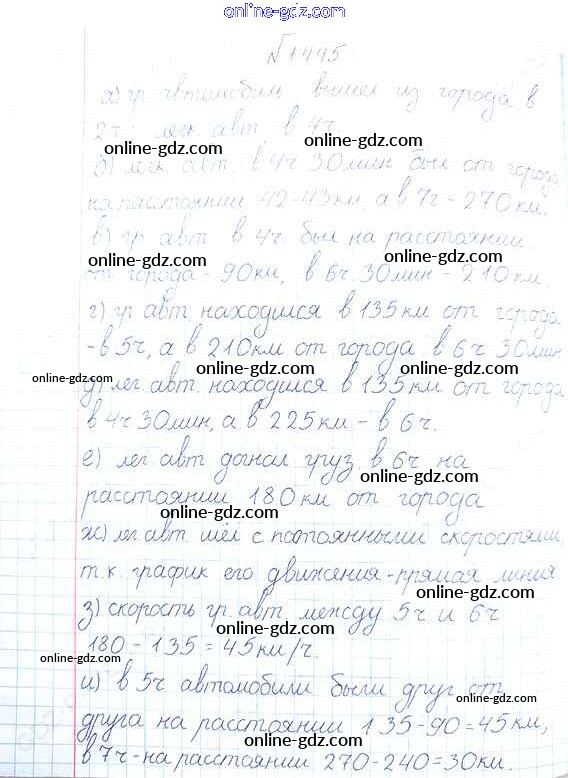 online-gdz.com
№1445
а) гр автомобиль вышел из города в
2ч, легк авт. в 4ч.
online-gdz.com online-gdz.com
б) легк. авт. в 4ч 30мин был от города
на расстоянии 42-43км, а в 7ч - 270км.
online-gdz.com
в) гр авт в 4ч. был на расстоянии
online-gdz.com online-gdz.com
от города - 90км, в 6ч. 30мин - 210км.
г) гр авт. находился в 135км от города
online-gdz.com
- в 5ч, а в 210км от города в 6ч 30мин
online-gdz.com online-gdz.com
д) лег. авт. находился в 135км от города
в 4ч 30мин, а в 225км - в 6ч.
online-gdz.com
е) лег авт догнал груз. в 6ч на
online-gdz.com
расстоянии 180км от города
online-gdz.com
ж) лег. авт. шёл с постоянными скоростями
online-gdz.com
т.к. график его движения - прямая линия
online-gdz.com
з) скорость гр. авт. между 5ч и 6ч
online-gdz.com
180 - 135 = 45км/ч.
online-gdz.com
и) в 5ч автомобили были друг от
online-gdz.com
друга на расстоянии 135-90=45км,
online-gdz.com
в 7ч - на расстоянии 270-240=30км.